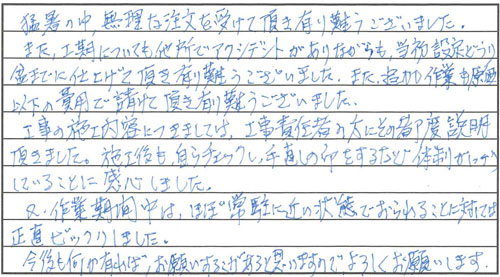 猛暑の中、無理な注文を受けて頂き有り難うございました。
また、工期についても他所でアクシデントがありながらも、当初設定どうり
盆までに仕上げて頂き有り難うございました。また、追加作業も原価
以下の費用で請けて頂き有り難うございました。
工事の施工内容につきましては、工事責任者の方にその都度説明
頂きました。施工後も、自らチェックし、手直しの印をするなど体制がしっかり
していることに感心しました。
又、作業期間中は、ほぼ常駐に近い状態でおられることに対しては
正直ビックリしました。
今後も何か有れば、お願いすることがあると思いますのでよろしくお願いします。